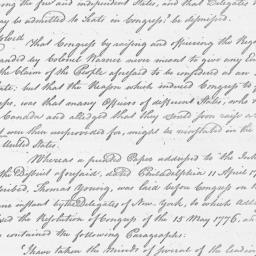 among the free and independent States, and that Delegates
may be admitted to Seats in Congress be dismissed.
Resolved
That Congress by raising and officering the Regi
manded by Colonel Warner never meant to give any Enc
the Claim of the People aforesaid to be considered as an
State; but that the Reason which induced Congress to f
Corps, was that many Officers of different States, who
in Canada and alledged that they could soon raise a
but were then unprovided for, might be reinstated in the
United States.
Whereas a printed Paper addressed to the Inh
the District aforesaid, dated Philadelphia 11 April 17
scribed, Thomas Young, was laid before Congress on
one instant by the Delegates of New York, to which Addre
ixed the Resolution of Congress of the 15 May 1776, a
contained the following Paragraphs:
"I have taken the minds of several of the leading